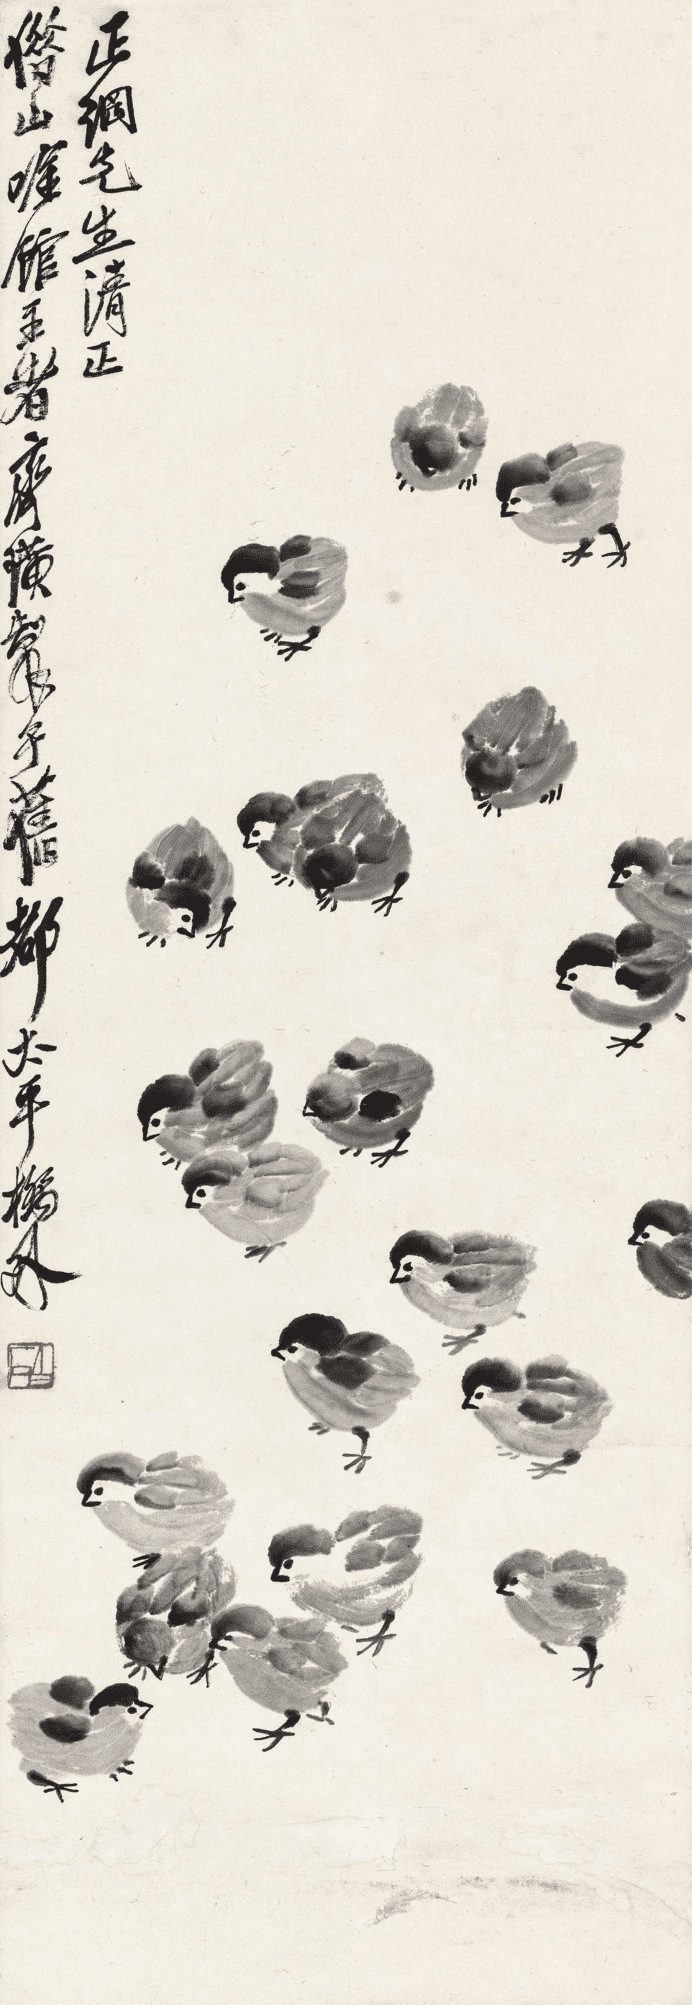 正綱先生清正
借山唫館主者齊璜製于舊都太平橋外